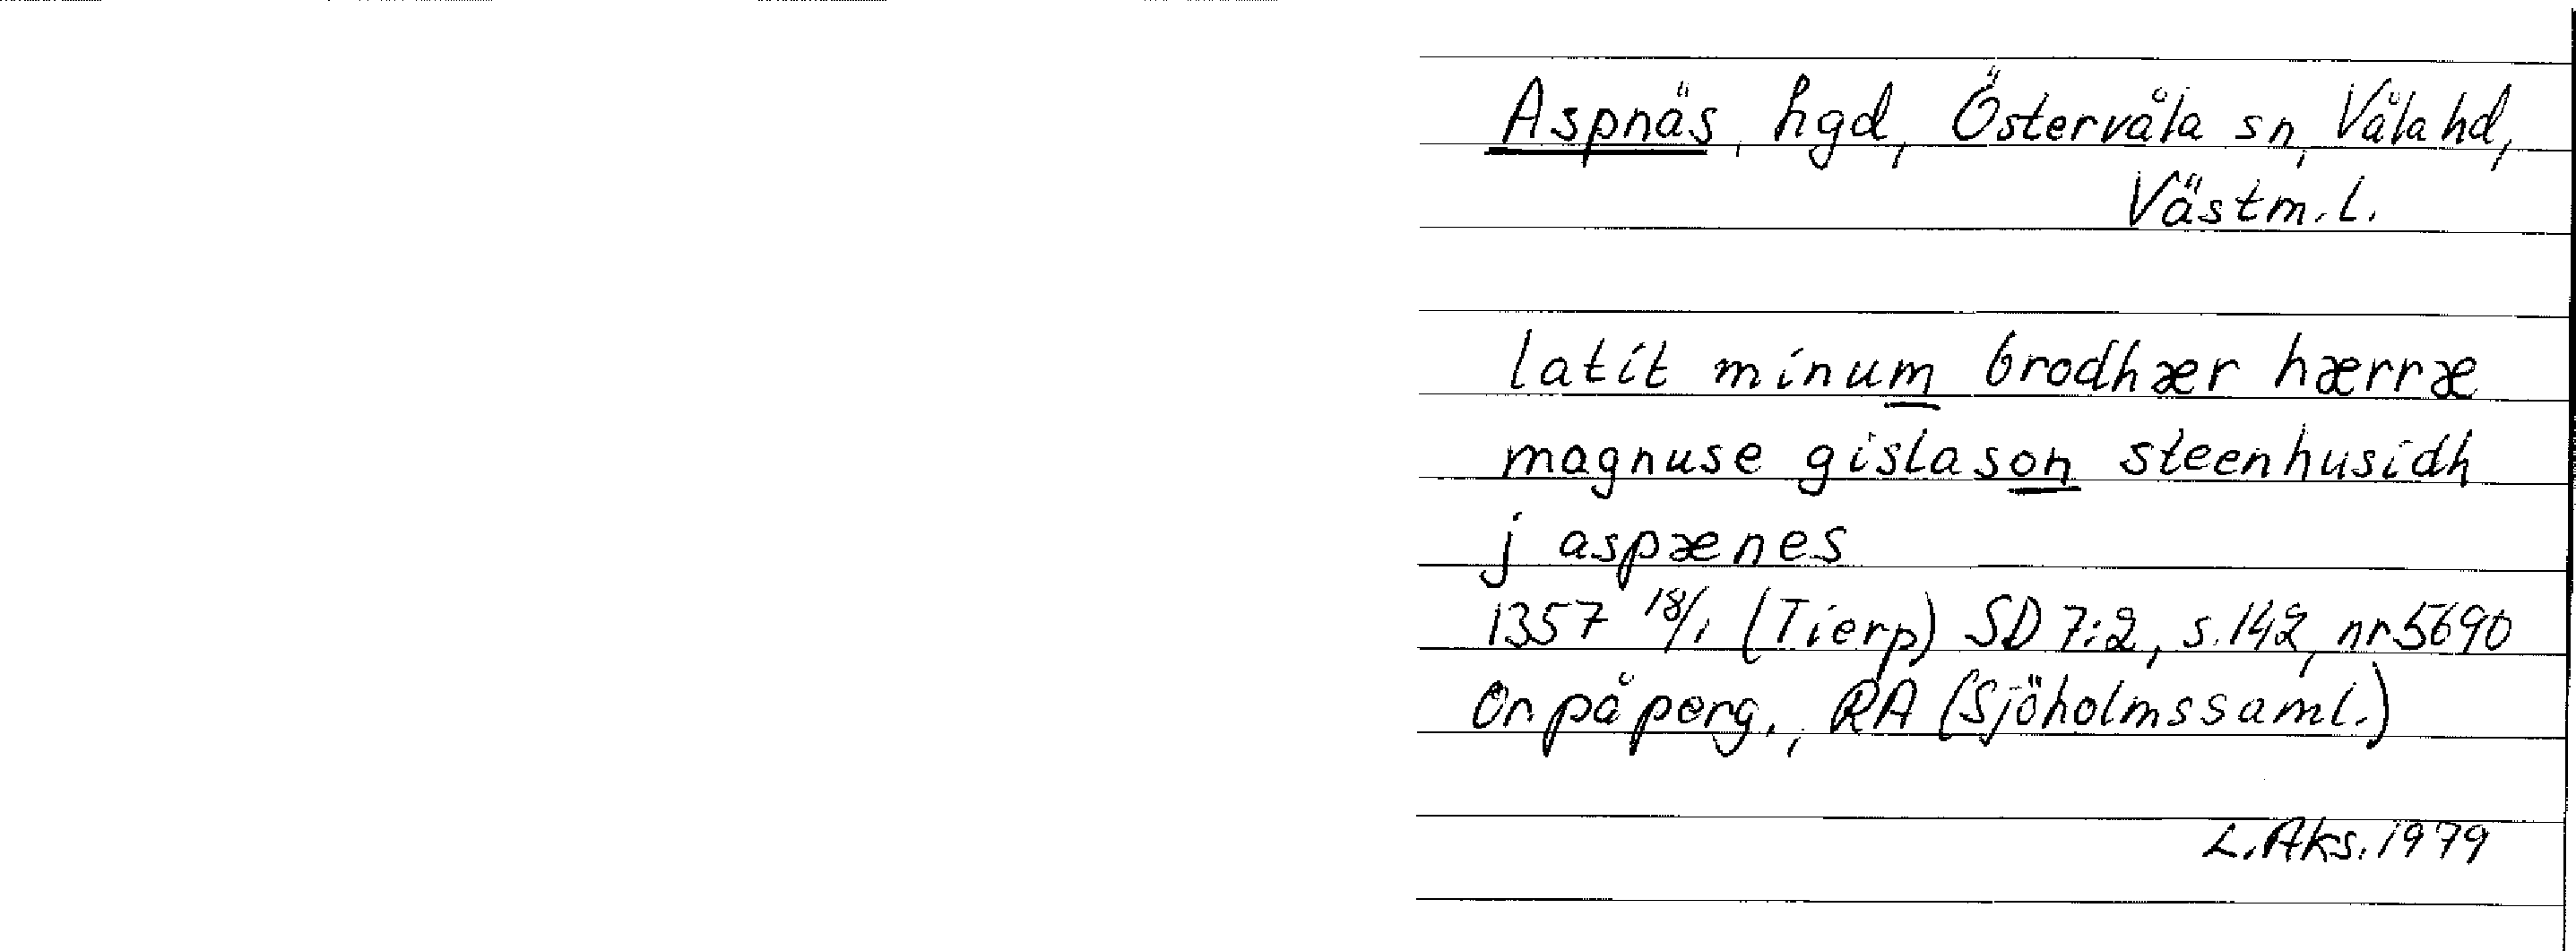 Aspnäs, hgd, Östervåla sn, Våla hd,
Västm. l.
latit minum brodhær hærræ
magnuse gislason steenhusidh
j aspænes
1357 18/1 (Tierp) SD 7:2, s. 142, nr 5690
Or på perg., RA (Sjöholmssaml.)
L. Aks. 1979